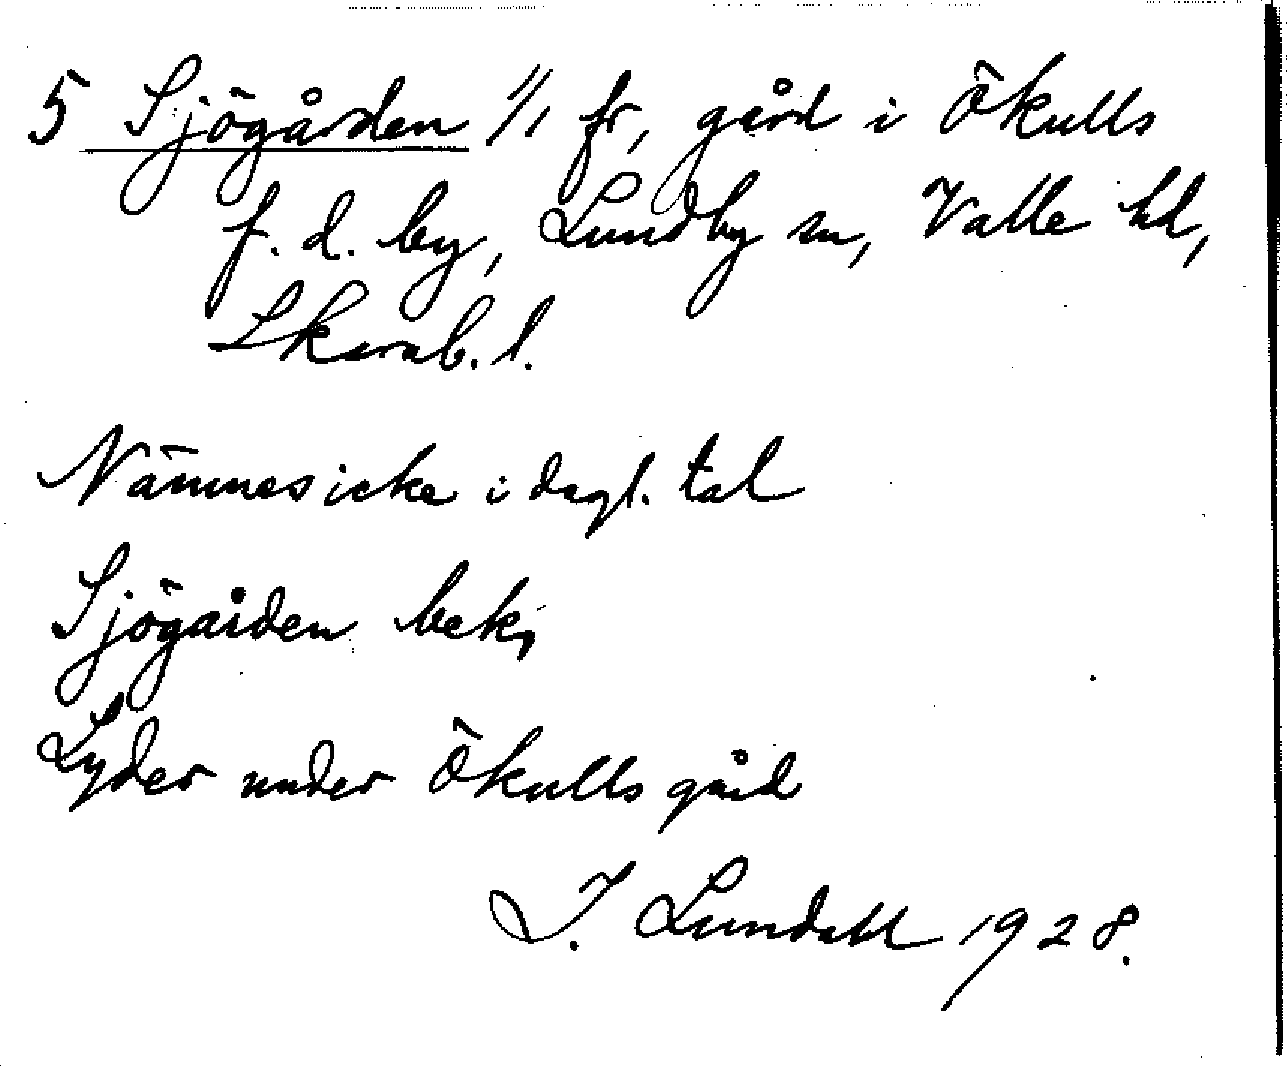 5 Sjögården 1/1 fr, gård i Ökulls
f. d. by, Lundby sn, Valle hd,
Skarab. l.
Nämnes icke i dagl. tal
Sjögården bek,
Lyder under Ökulls gård
I. Lundahl 1928.